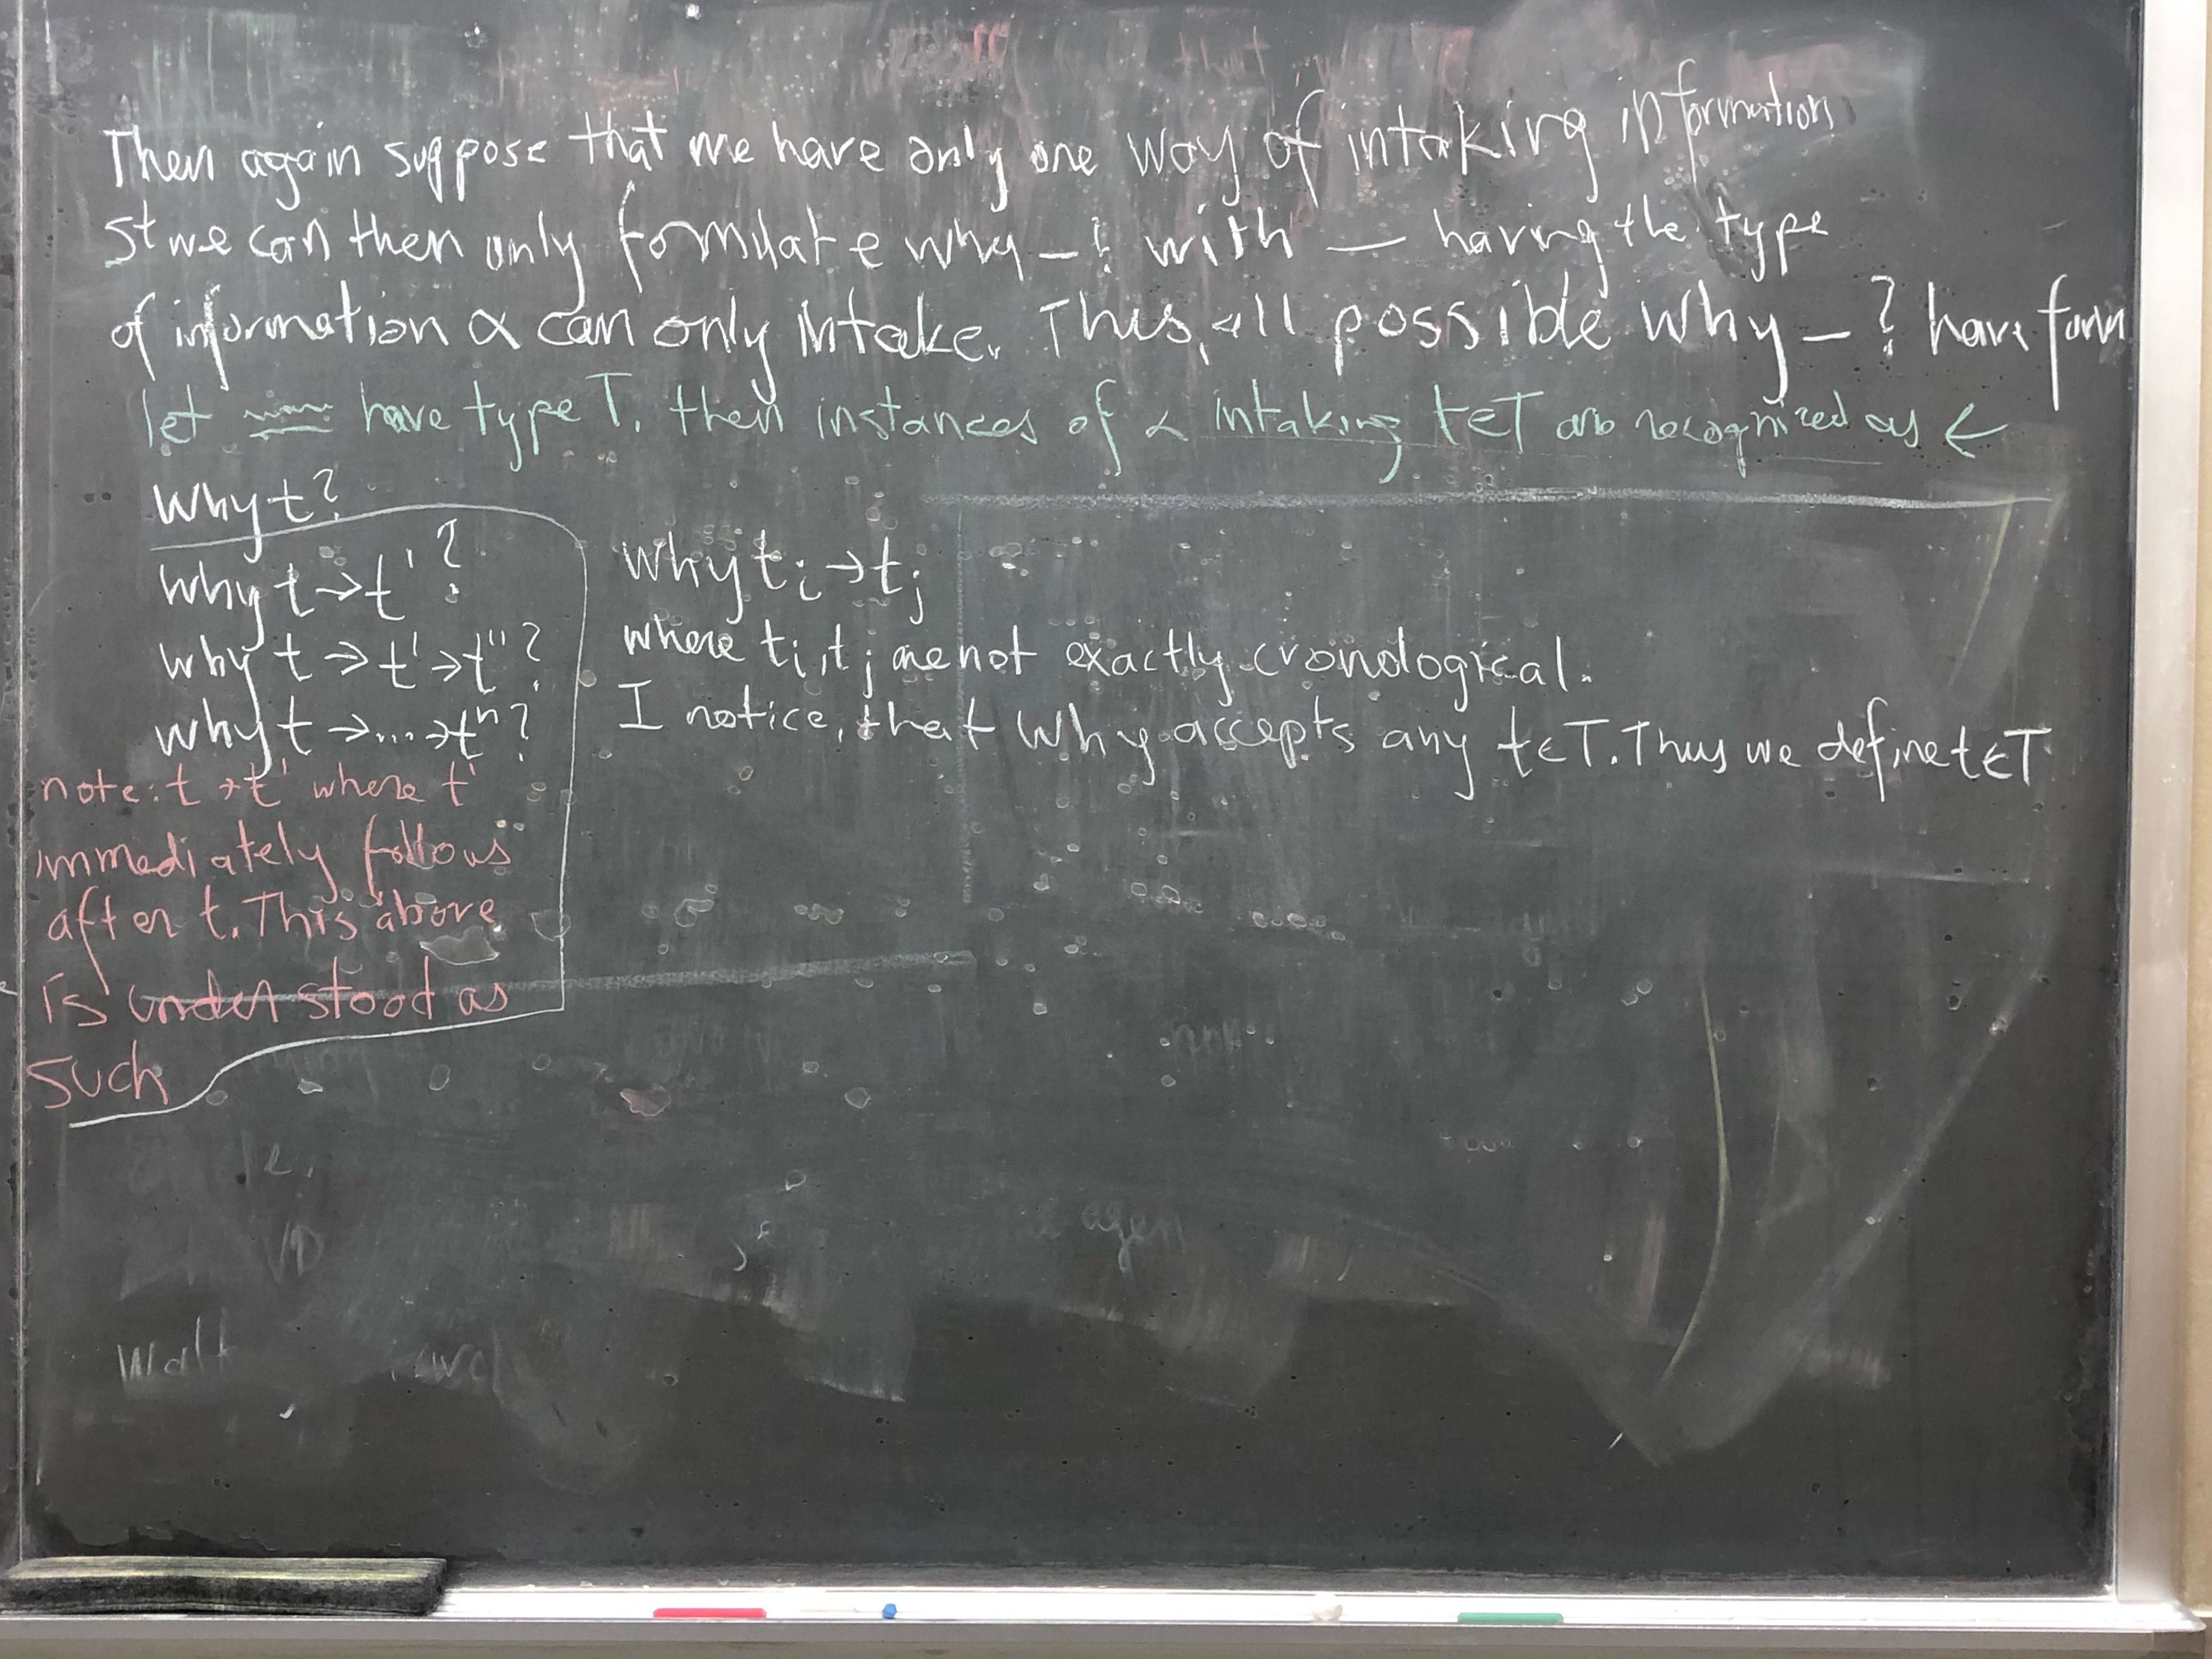 Then again suppose that we have only one way of intaking information
st we can then only formulate why _? with — having the type
of information α can only intake. Thus, all possible why _? have form
let have type T. then instances of α intaking t∈T are recognized as ←
Why t?
why t→t'?
why t→t'→t''?
why t→...→tⁿ?
note: t→t' where t'
immediately follows
after t. This above
is understood as
such
why tᵢ→tⱼ
where tᵢ, tⱼ are not exactly cronological.
I notice, that Why accepts any t∈T. Thus we define t∈T
agen